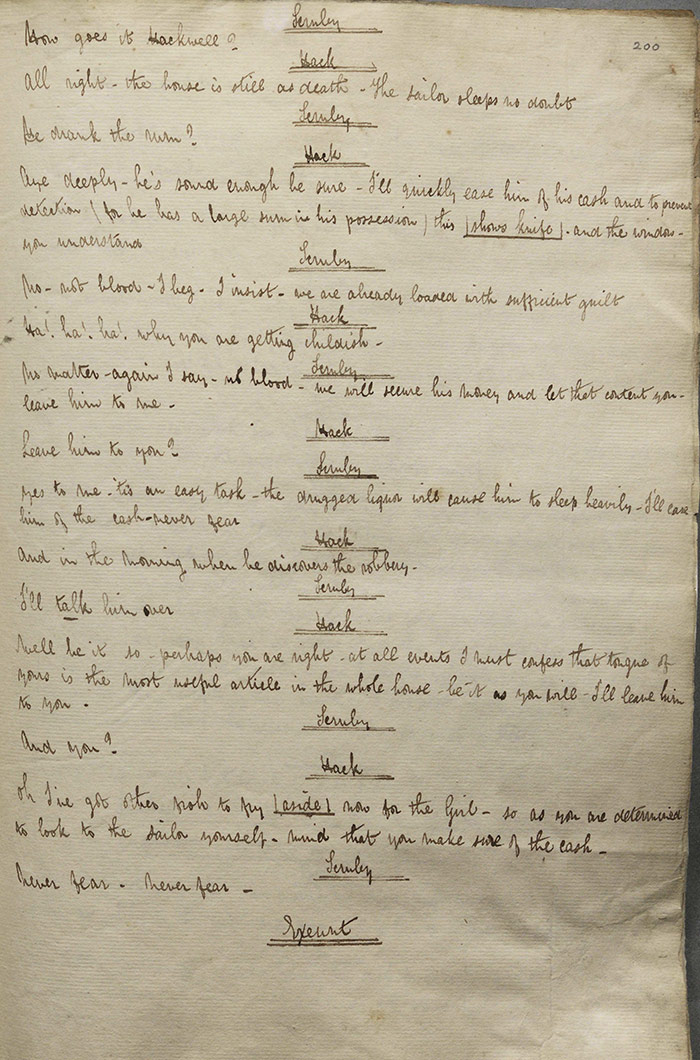 Scruby
200
How goes it Hackwell?
Hack
All right - the house is still as death - The sailor sleeps no doubt
Scruby
He drank the rum?
Hack
Aye deeply - he's sound enough be sure - I'll quickly ease him of his cash and to prevent
detection (for he has a large sum in his possession) this (shows knife). and the window -
you understand
Scruby
No - not blood - I beg - I insist - we are already loaded with sufficient guilt
Hack
Ha! ha! ha! why you are getting childish -
Scruby
No matter - again I say - no blood - we will secure his money and let that content you -
leave him to me -
Hack
Leave him to you?
Scruby
yes to me - 'tis an easy task - the drugged liquor will cause him to sleep heavily - I'll ease
him of the cash - never fear
Hack
And in the morning when he discovers the robbery -
Scruby
I'll talk him over
Hack
Well be it so - perhaps you are right - at all events I must confess that tongue of
yours is the most useful article in the whole house - be it as you will - I'll leave him
to you -
Scruby
And you?
Hack
oh I've got other fish to fry (aside) now for the Girl - so as you are determined
to look to the sailor yourself - mind that you make sure of the cash -
Scruby
Never fear - never fear -
Exeunt